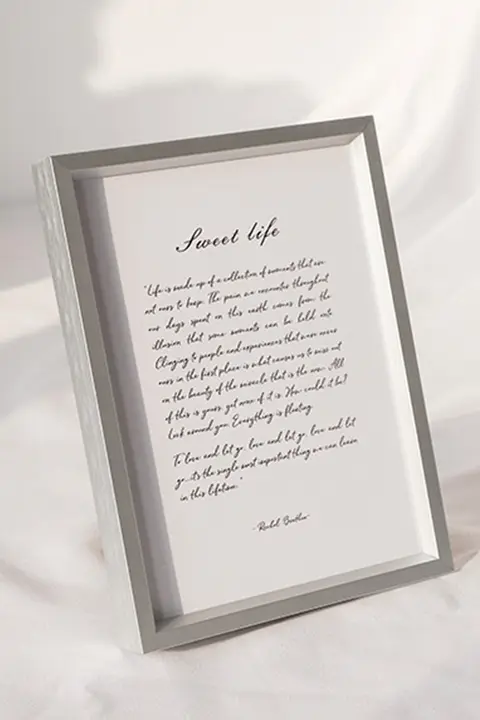 Sweet life
"Life is made up of a collection of moments that are
not ours to keep. The pain we encounter throughout
our days spent on this earth comes from the
illusion that some moments can be held onto.
Clinging to people and experiences that were never
ours in the first place is what causes us to miss out
on the beauty of the miracle that is the now. All
of this is yours, yet none of it is. How could it be?
Look around you. Everything is fleeting.
To love and let go, love and let go, love and let
go...it's the single most important thing we can learn
in this lifetime."
- Rachel Brathen